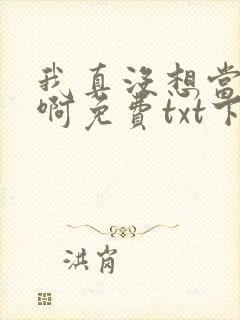 我真没想当
啊免费txt下
洪岗